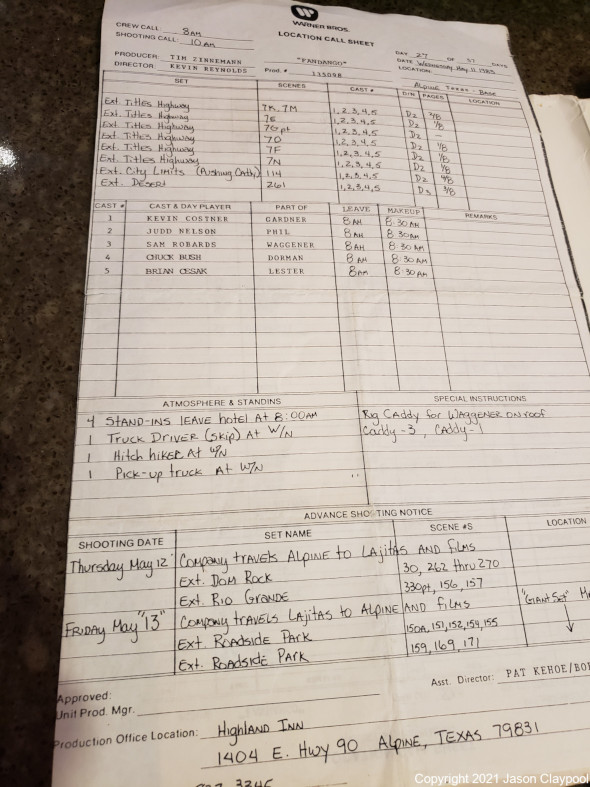 WARNER BROS.
LOCATION CALL SHEET
CREW CALL 8AM
SHOOTING CALL: 10AM
DAY 27 OF 37 DAYS
DATE Wednesday, May 11, 1983
LOCATION:
Alpine Texas - Base
PRODUCER: TIM ZINNEMANN
DIRECTOR: KEVIN REYNOLDS
"FANDANGO"
Prod. # 135098
SET SCENES CAST # D/N PAGES LOCATION
Ext. Titles Highway 7K, 7M 1,2,3,4,5 D2 3/8
Ext. Titles Highway 7E 1,2,3,4,5 D2 1/8
Ext. Titles Highway 7G pt 1,2,3,4,5 D2 —
Ext. Titles Highway 7D 1,2,3,4,5 D2 1/8
Ext. Titles Highway 7F 1,2,3,4,5 D2 1/8
Ext. Titles Highway 7N 1,2,3,4,5 D2 1/8
Ext. City Limits (Pushing Caddy) 114 1,2,3,4,5 D2 4/8
Ext. Desert 261 1,2,3,4,5 D3 3/8
CAST # CAST & DAY PLAYER PART OF LEAVE MAKEUP REMARKS
1 KEVIN COSTNER GARDNER 8AM 8:30AM
2 JUDD NELSON PHIL 8AM 8:30AM
3 SAM ROBARDS WAGGENER 8AM 8:30AM
4 CHUCK BUSH DORMAN 8AM 8:30AM
5 BRIAN CESAK LESTER 8AM 8:30AM
ATMOSPHERE & STANDINS SPECIAL INSTRUCTIONS
4 STAND-INS LEAVE hotel At 8:00AM
1 Truck Driver (Skip) At W/N
1 Hitch hiker At W/N
1 Pick-up truck At W/N
Rig Caddy for WAGGENER ON roof
Caddy-3, CAddy-1
ADVANCE SHOOTING NOTICE
SHOOTING DATE SET NAME SCENE #S LOCATION
Thursday May 12 Company travels Alpine to Lajitas AND films
Ext. Dom Rock 30, 262 thru 270
Ext. Rio Grande 330pt, 156, 157
Friday May "13" Company travels Lajitas to Alpine AND films "Giant Set"
Ext. Roadside Park 150A, 151, 152, 154, 155
Ext. Roadside Park 159, 169, 171
Asst. Director: PAT KEHOE/BO
Approved:
Unit Prod. Mgr.
Production Office Location: Highland Inn
1404 E. Hwy 90 Alpine, TEXAS 79831
Copyright © 2021 Jason Claypool